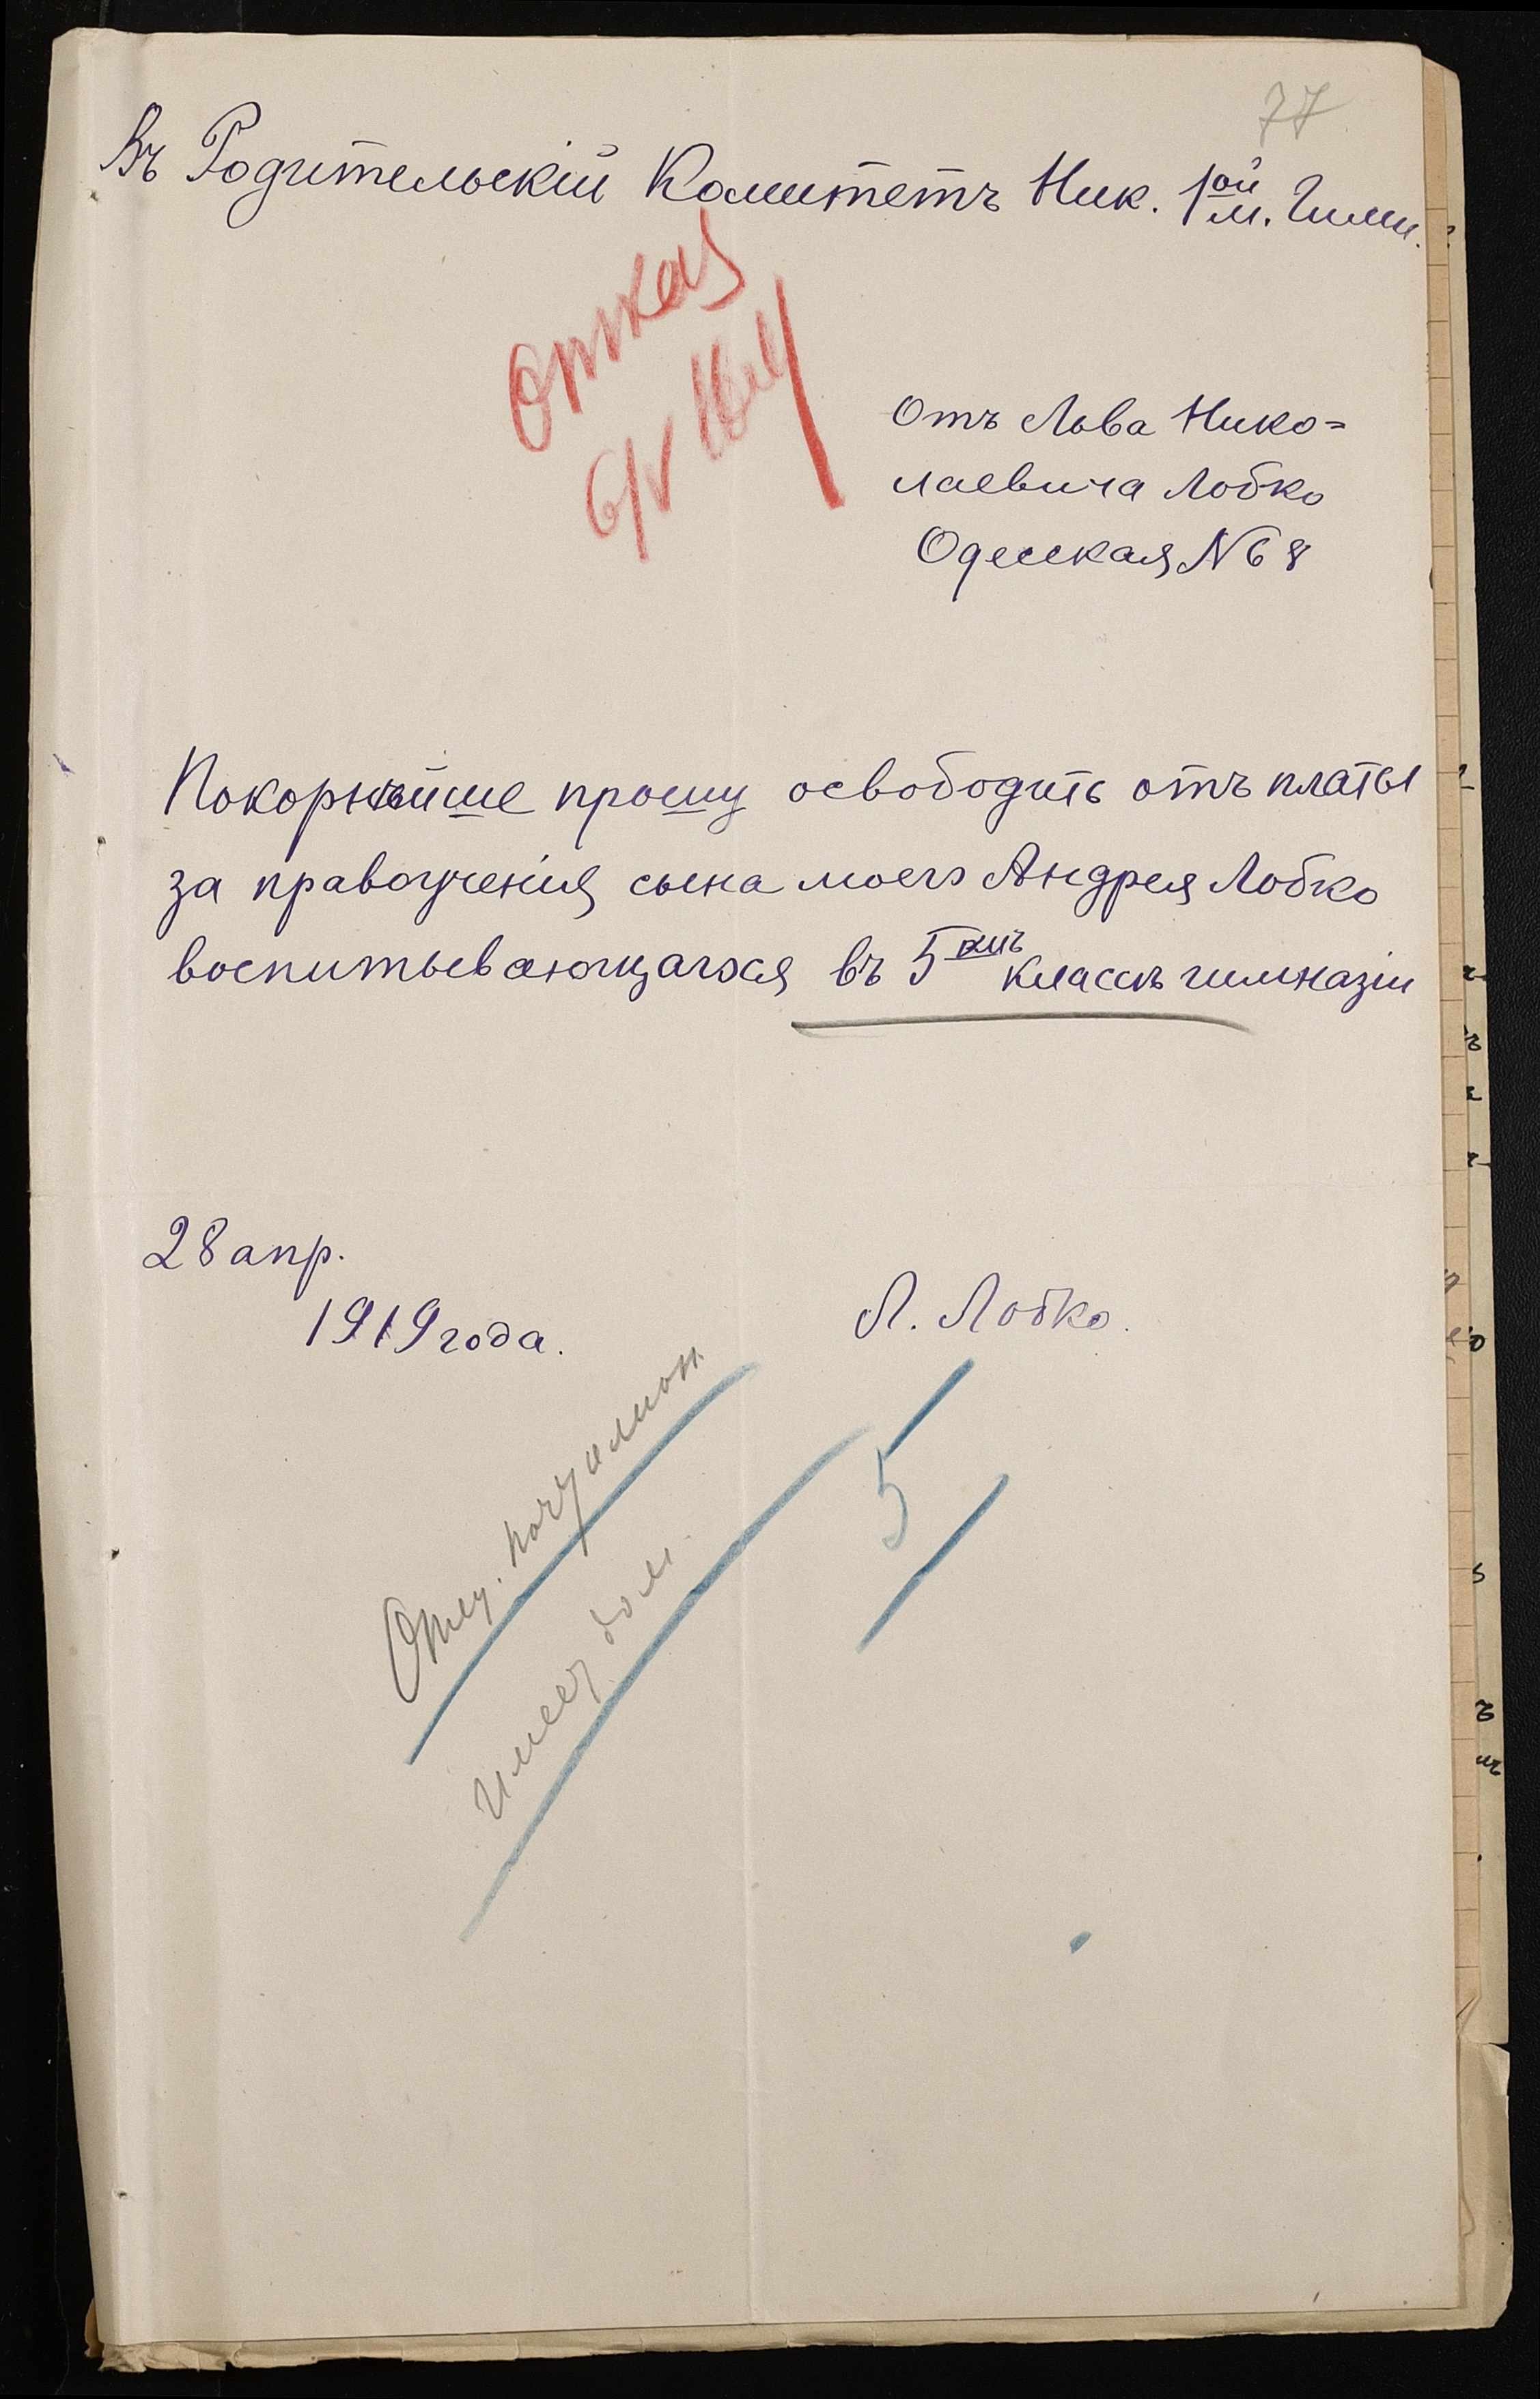 77
Въ Родительскій Комитетъ Ник. 1ой м. Гимн.
Отказ
6/V
Отъ Льва Нико=
лаевича Лобко
Одесская N 68
Покорнѣйше прошу освободить отъ платы
за правоученія сына моего Андрея Лобко
воспитывающагося въ 5омъ классѣ гимназіи
28 апр.
1919 года.
Л. Лобко.
5
имеет дом.